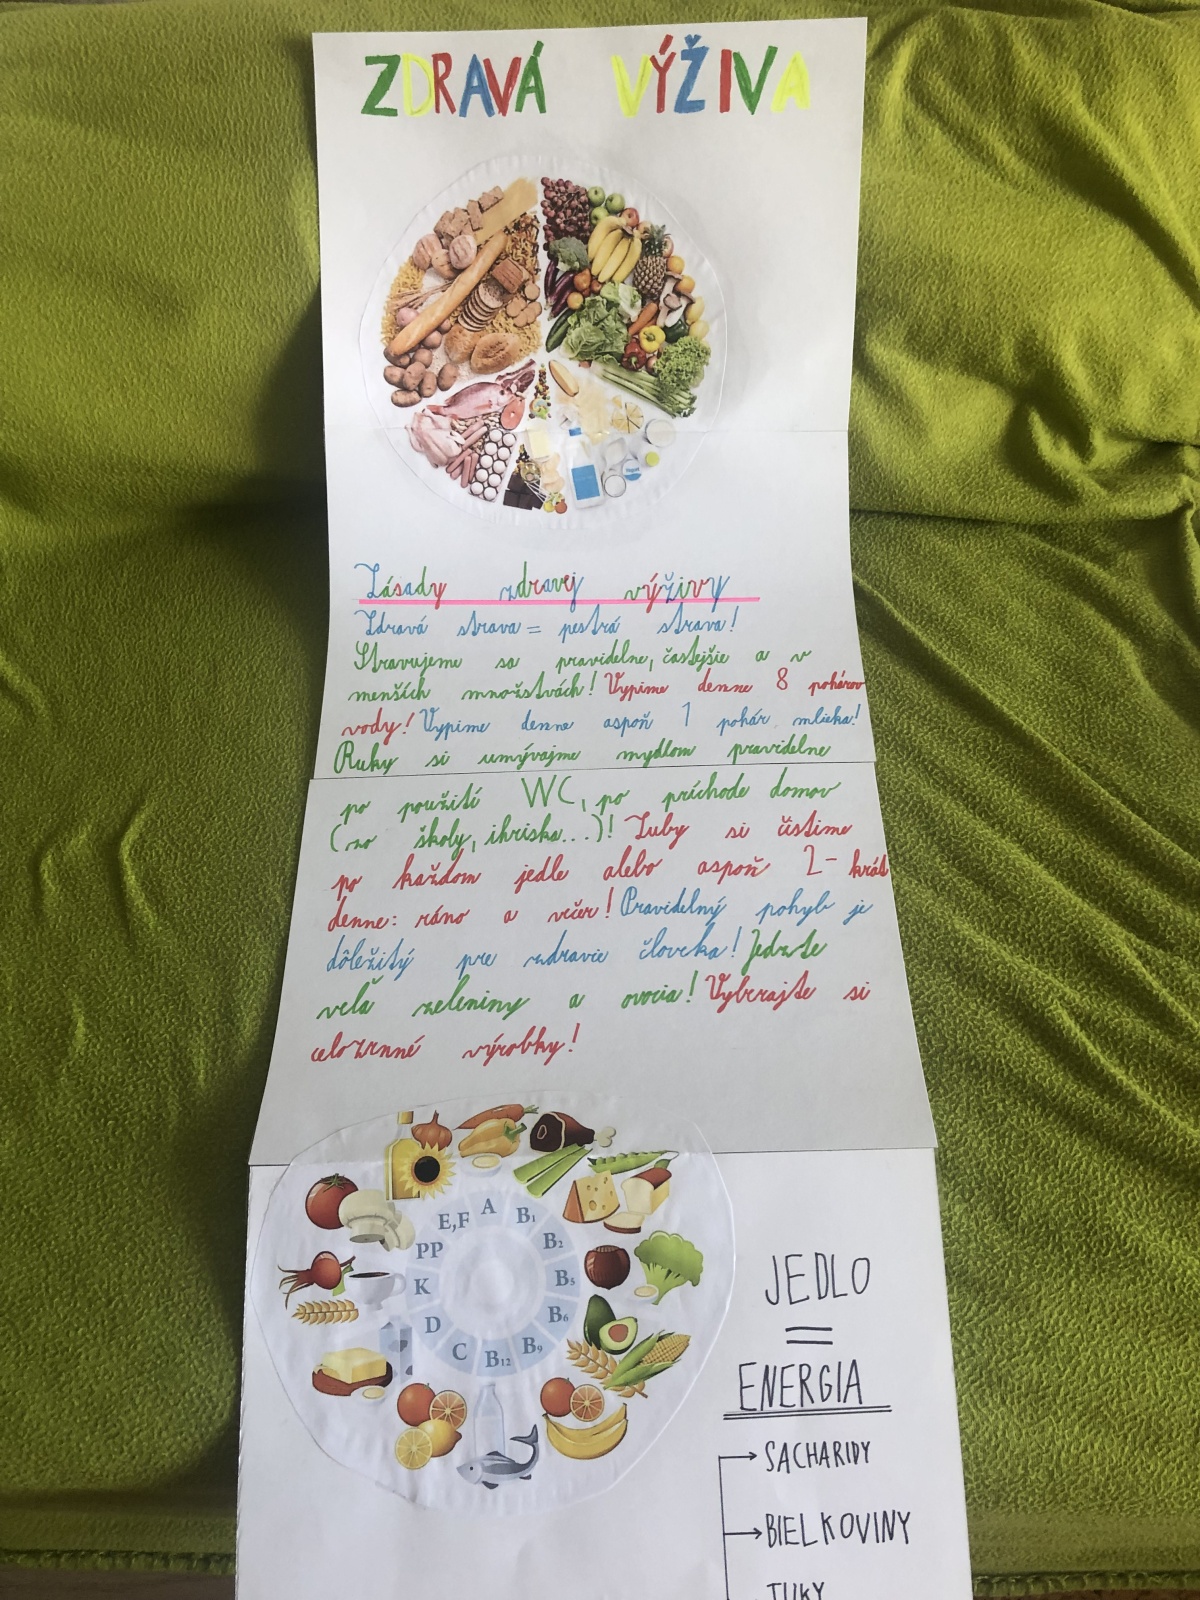 ZDRAVÁ VÝŽIVA
Zásady zdravej výživy
Zdravá strava = pestrá strava!
Stravujeme sa pravidelne, častejšie a v
menších množstvách! Vypime denne 8 pohárov
vody! Vypime denne aspoň 1 pohár mlieka!
Ruky si umývajme mydlom pravidelne
po použití WC, po príchode domov
(zo školy, ihriska...)! Zuby si čistime
po každom jedle alebo aspoň 2-krát
denne: ráno a večer! Pravidelný pohyb je
dôležitý pre zdravie človeka! Jedzte
veľa zeleniny a ovocia! Vyberajte si
celozrnné výrobky!
A
B1
B2
B5
B6
B9
B12
C
D
K
PP
E,F
JEDLO
=
ENERGIA
SACHARIDY
BIELKOVINY
TUKY